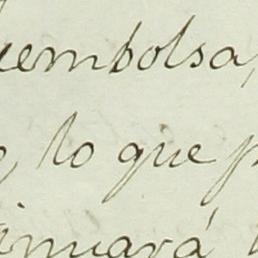 embolsa,
, lo que p
inuará